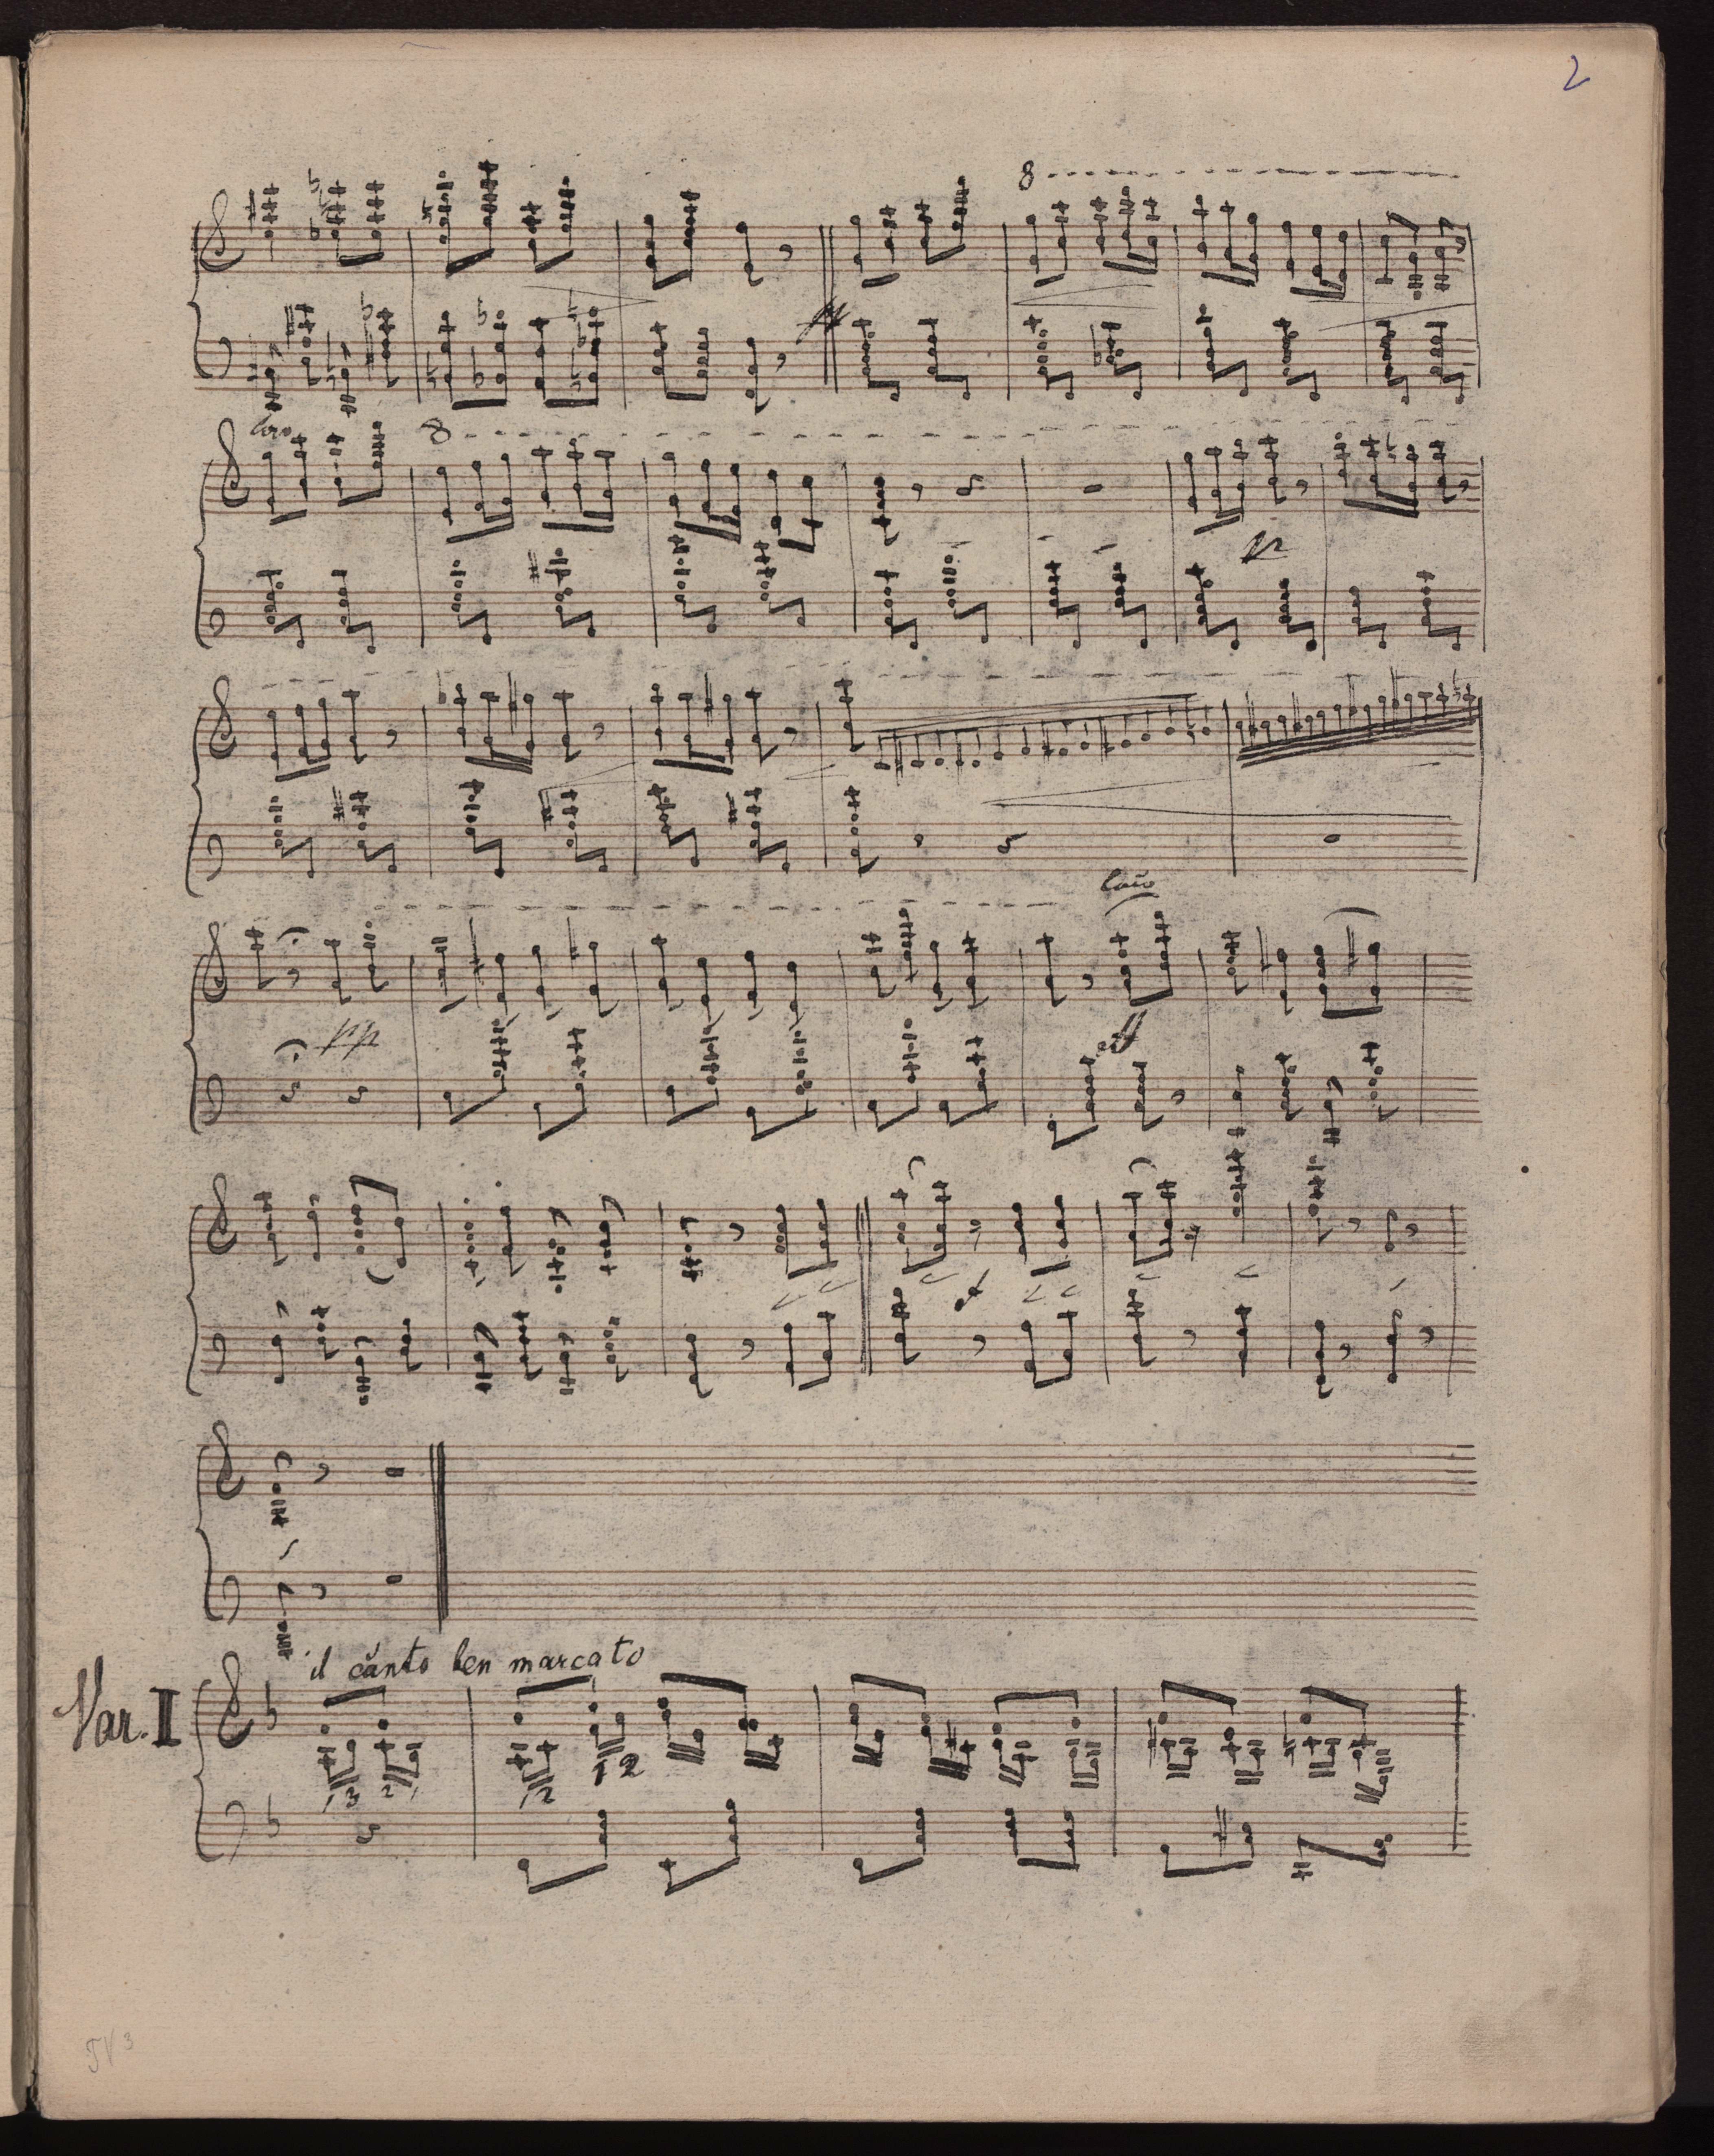 2
8
loco
8
pp
loco
pp
ff
il canto ben marcato
Var. I
1 3 2 1
1 2
1 2